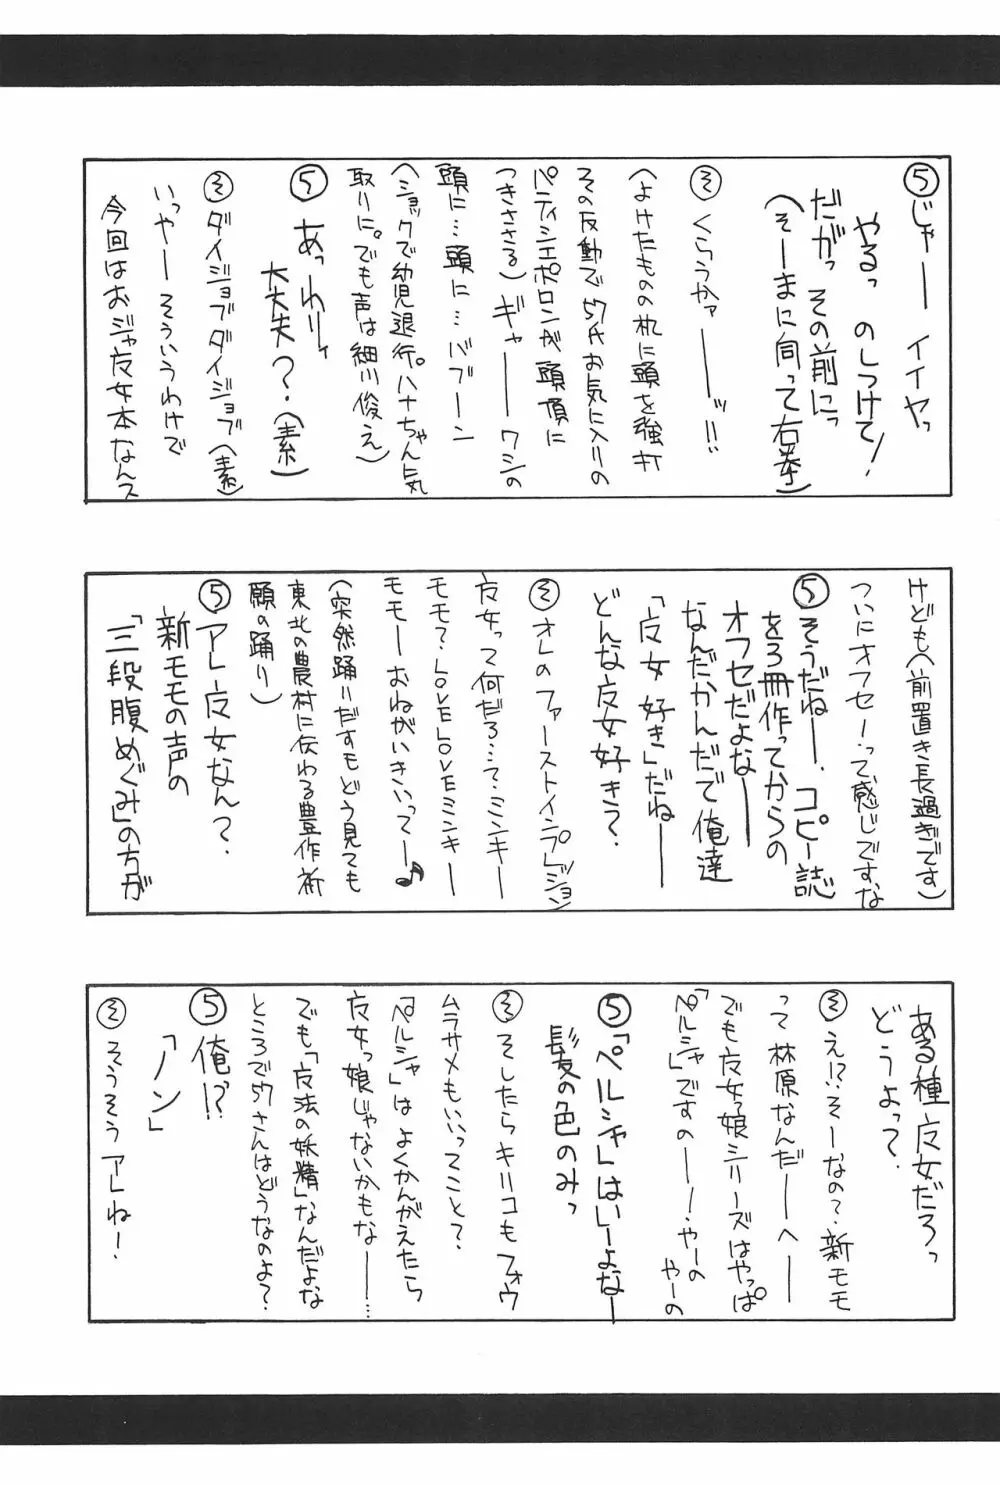 ⑤じゃーー イイヤっ
やるっ のしつけて!
だがっ その前にっ
(そーまに向って右拳)
㋞くらうかァーーーッ!!!
(よけたものの机に頭を強打
その反動で57氏お気に入りの
パティシエポロンが頭頂に
つきささる)ギャーーー ワシの
頭に…頭に…バブーン
(ショックで幼児退行。ハナちゃん気
取りに。でも声は細川俊え)
⑤あっわりィ
大丈夫?(素)
㋞ダイジョブダイジョブ(素)
いっやーーそういうわけで
今回はおジャ女本なんス
けども(前置き長過ぎです)
ついにオフセー!って感じですな
⑤そうだねー、コピー誌
を3冊作ってからの
オフセだよなーーー
なんだかんだで俺達
「女好き」だねーー
どんな女好き?
㋞オレのファーストインプレジョン
女って何だろ…?ミンキーー
モモ?LOVELOVEミンキーー
モモーーおねがいきいってー♪
(突然踊りだすもどう見ても
東北の農村に伝わる豊作祈
願の踊り)
⑤アレ女なん?
新モモの声の
「三段腹めぐみ」の方が
ある種女だろっ
どうよって?
㋞えっ!?そーなの?新モモ
って林原なんだーーへーー
でも女っ娘シリーズはやっぱ
「ペルシャ」ですのーー!やーの
やーの
⑤「ペルシャ」はいーよなー
髪の色のみっ
㋞そしたらキリコもフォウ
ムラサメもいいってこと?
「ペルシャ」はよくかんがえたら
女っ娘じゃないかもなーー…
でも「法の妖精」なんだよな
ところで57さんはどうなのよ?
⑤俺!?
「ノン」
㋞そうそうアレね!